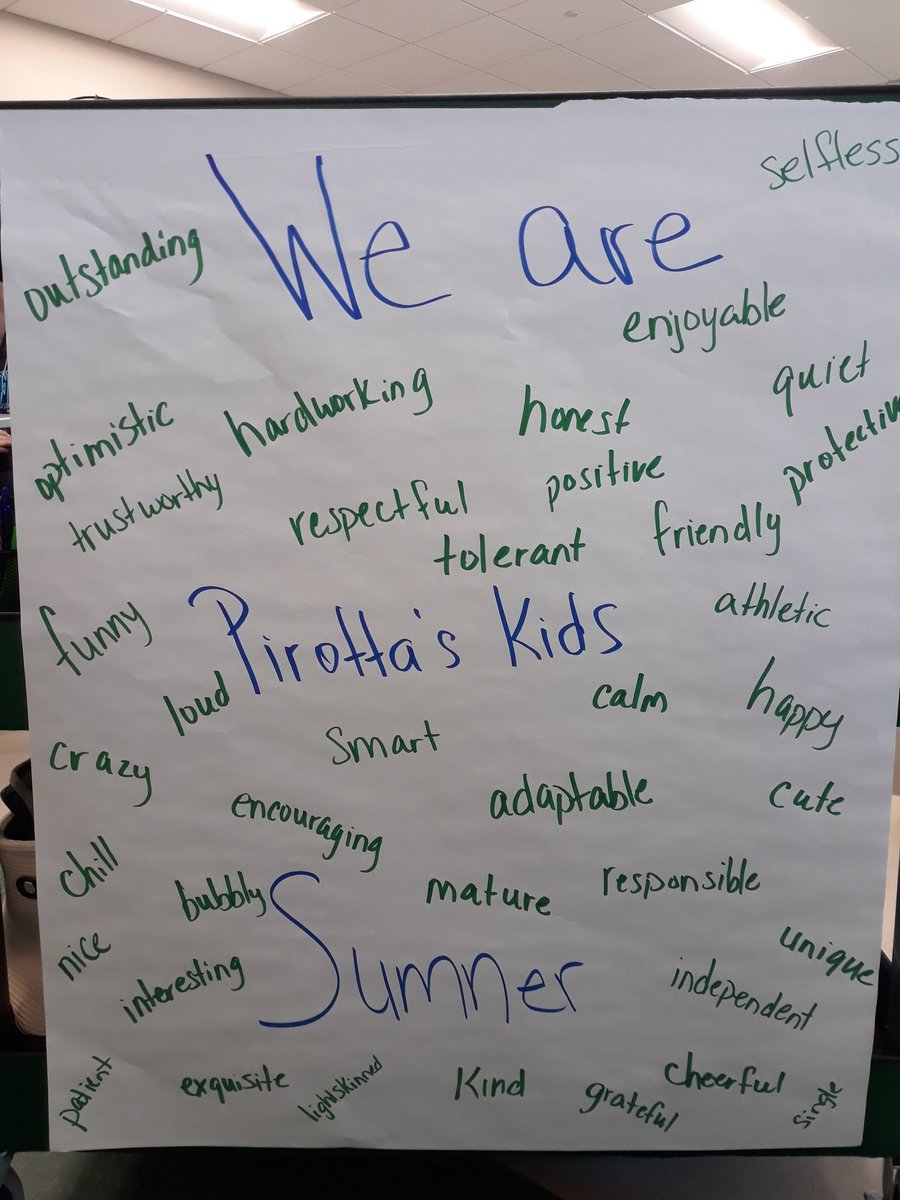 selfless
We are
outstanding
enjoyable
quiet
optimistic
hardworking
honest
protective
trustworthy
respectful
positive
tolerant
friendly
funny
Pirotta's Kids
athletic
loud
calm
happy
crazy
Smart
encouraging
adaptable
cute
chill
bubbly
mature
responsible
nice
interesting
Sumner
independent
unique
patient
exquisite
lightskinned
Kind
grateful
cheerful
single